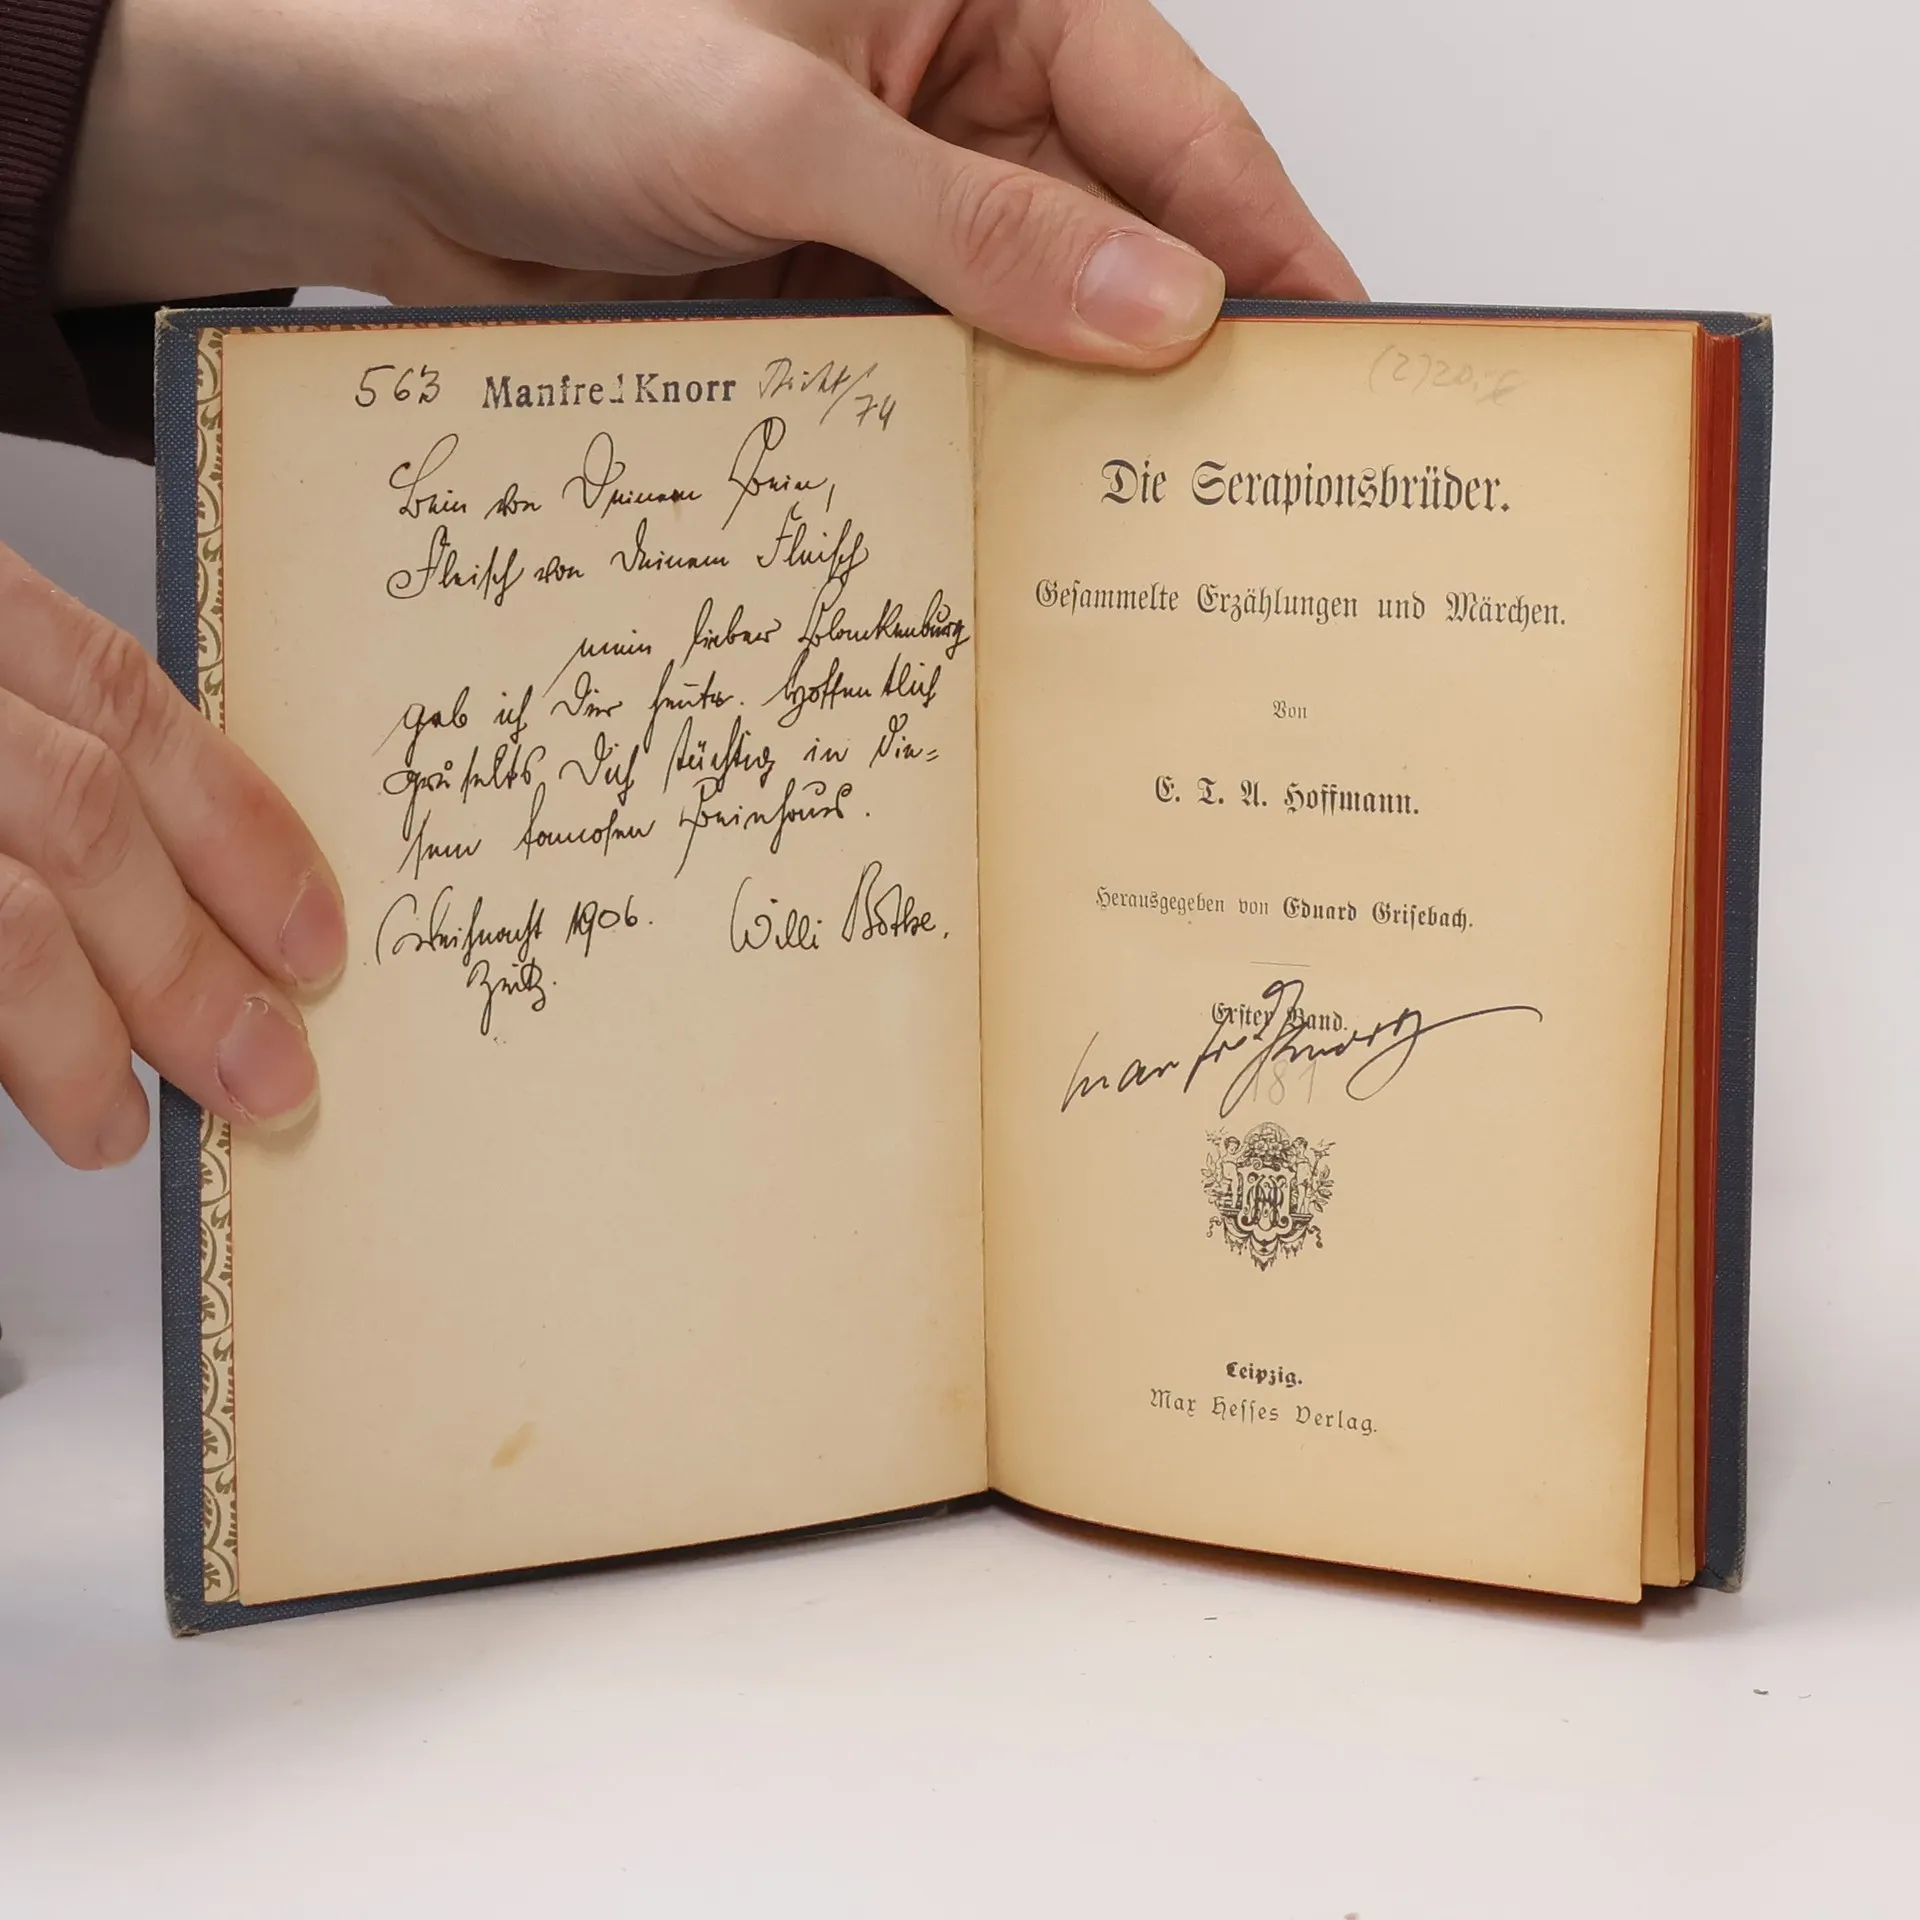 563 Manfred Knorr
/74
Bein von Deinem Bein,
Fleisch von Deinem Fleisch
mein lieber Blankenburg
geb ich Dir heute. Hoffentlich
gruselts Dich tüchtig in die=
sem famosen Beinhaus.
Weihnacht 1906. Willi Bothe.
Zeitz.
(2) 20,-
Die Serapionsbrüder.
Gesammelte Erzählungen und Märchen.
Von
E. T. A. Hoffmann.
Herausgegeben von Eduard Grisebach.
Erster Band.
Manfred Knorr
181
Leipzig.
Max Hesses Verlag.